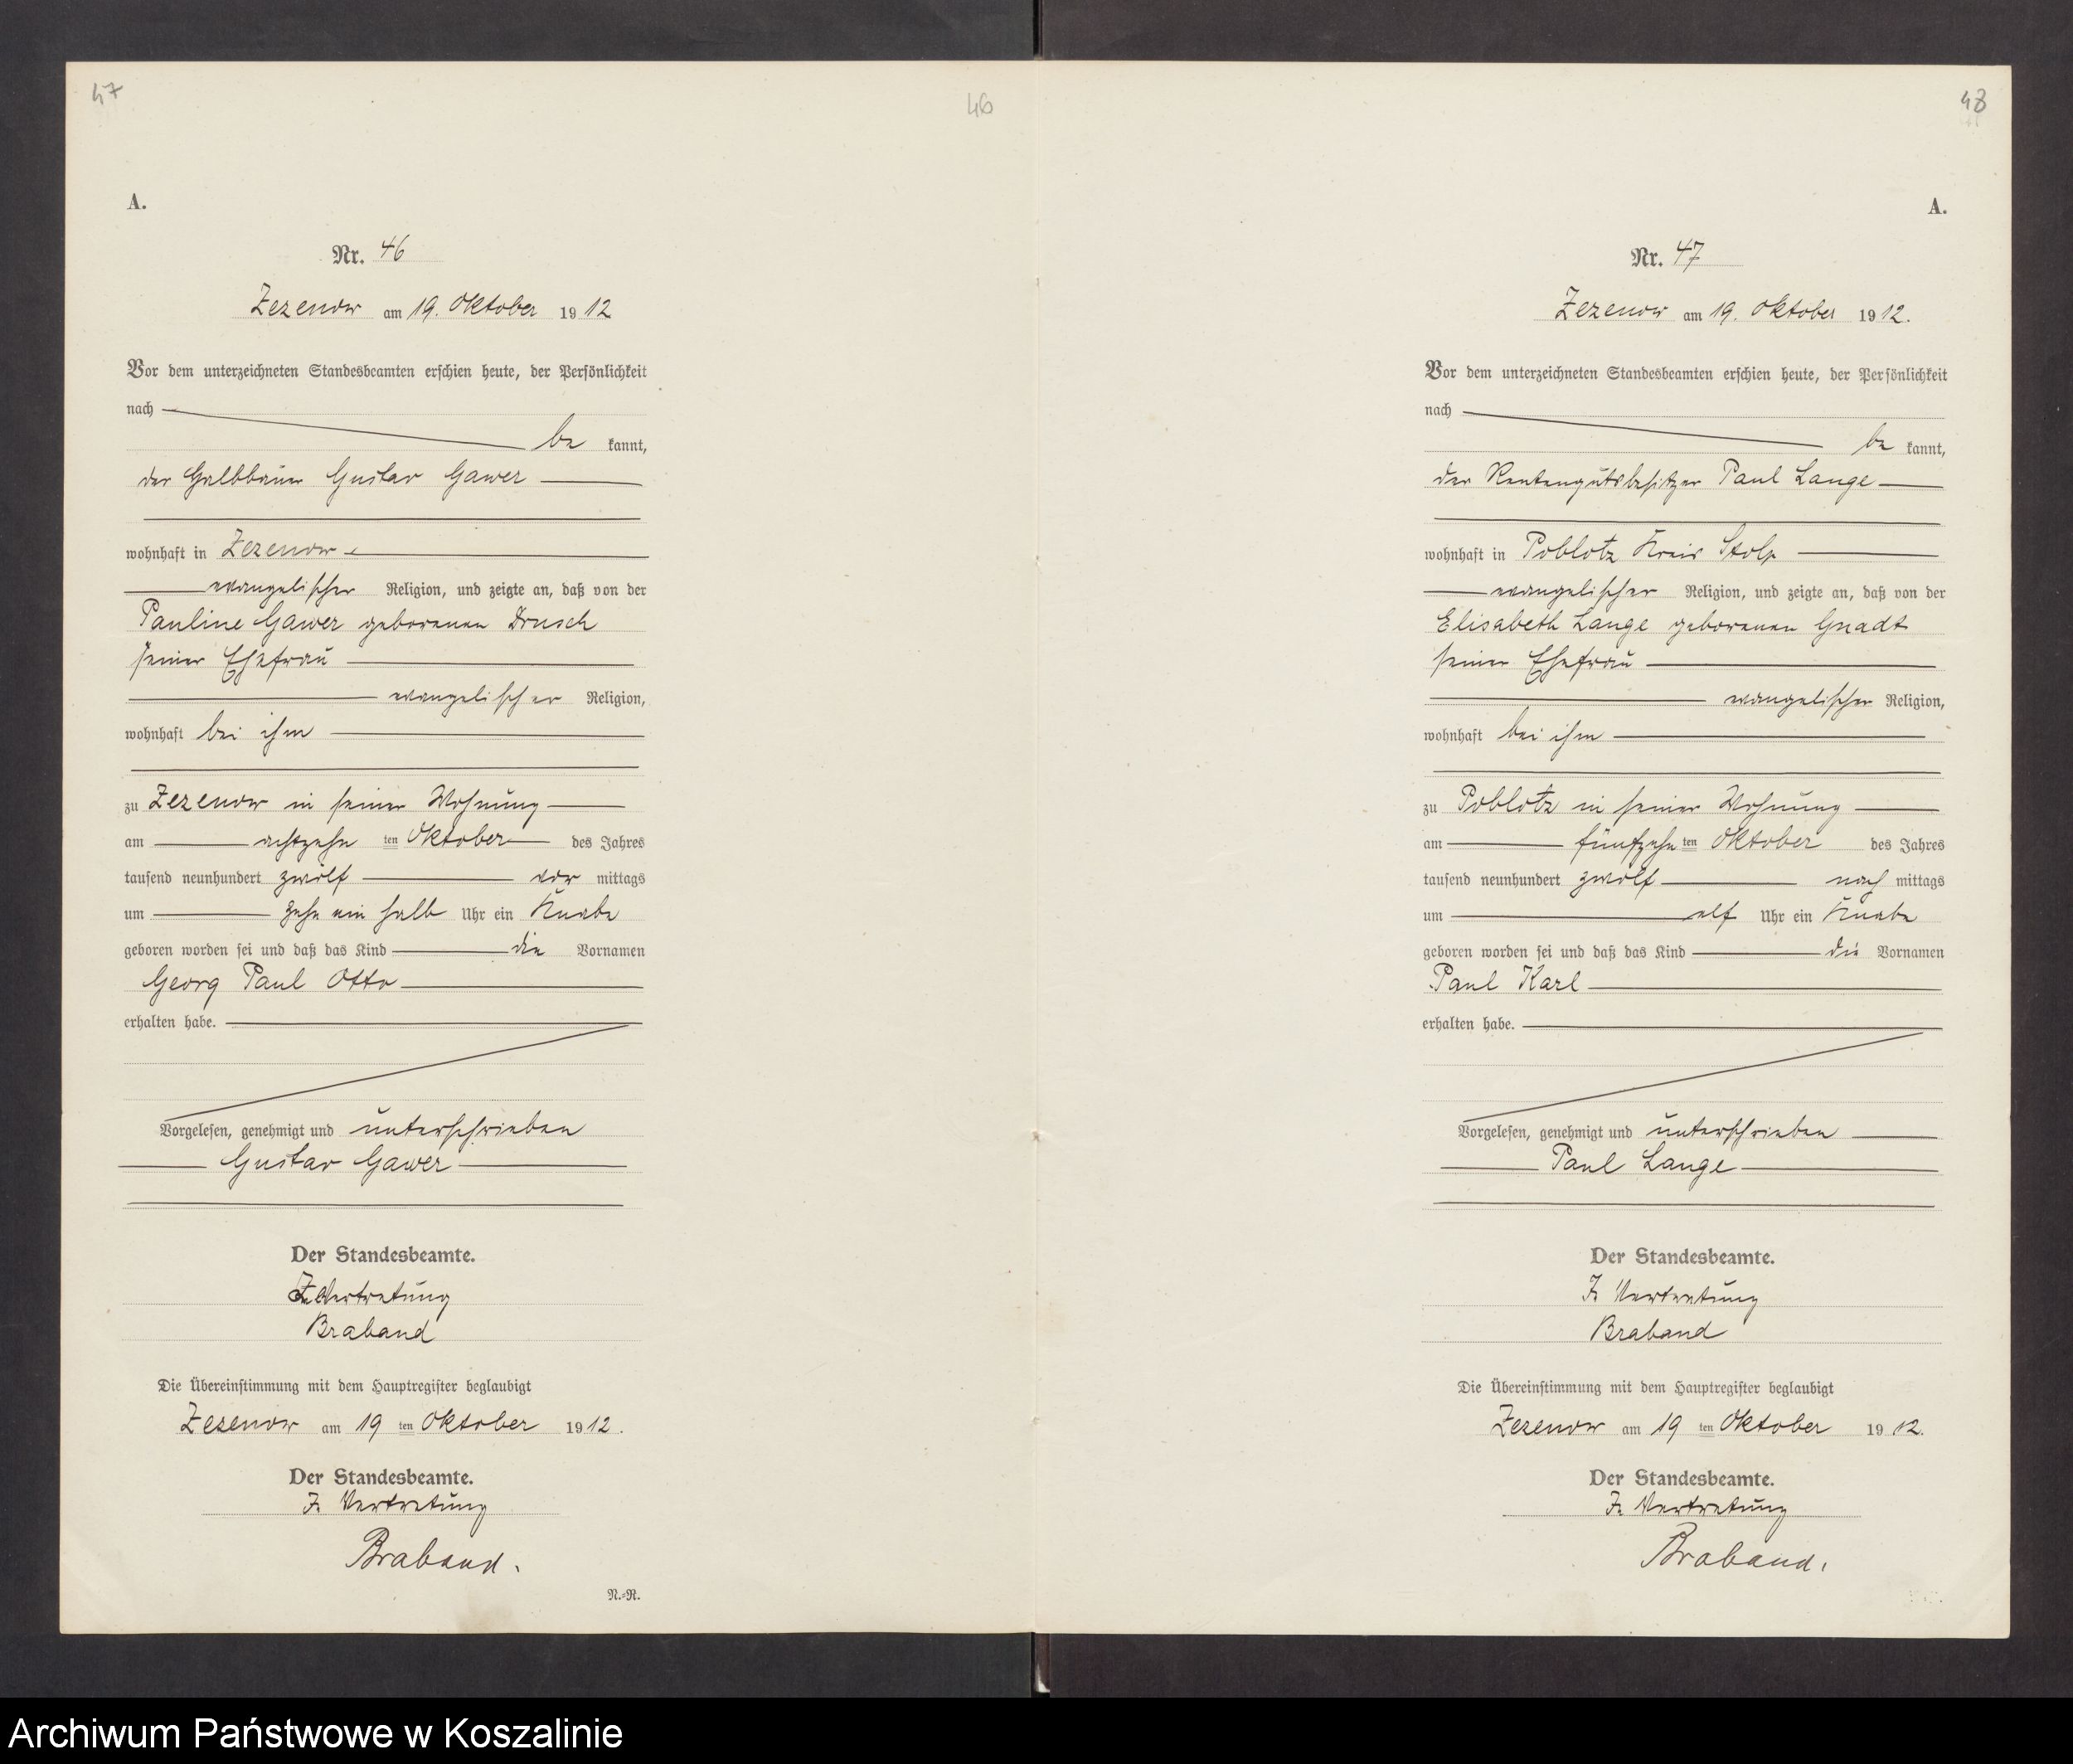 47
46
A.
Nr. 46
Zezenow am 19. Oktober 1912
Vor dem unterzeichneten Standesbeamten erschien heute, der Persönlichkeit
nach
be kannt,
der Halbbauer Gustav Gawer
wohnhaft in Zezenow
evangelischer Religion, und zeigte an, daß von der
Pauline Gawer geborenen Drusch
seiner Ehefrau
evangelischer Religion,
wohnhaft bei ihm
zu Zezenow in seiner Wohnung
am achtzehn ten Oktober des Jahres
tausend neunhundert zwölf vor mittags
um zehn ein halb Uhr ein Knabe
geboren worden sei und daß das Kind die Vornamen
Georg Paul Otto
erhalten habe.
Vorgelesen, genehmigt und unterschrieben
Gustav Gawer
Der Standesbeamte.
Vertretung
Braband
Die Übereinstimmung mit dem Hauptregister beglaubigt
Zezenow am 19 ten Oktober 1912.
Der Standesbeamte.
In Vertretung
Braband.
N.-R.
48
A.
Nr. 47
Zezenow am 19. Oktober 1912.
Vor dem unterzeichneten Standesbeamten erschien heute, der Persönlichkeit
nach
be kannt,
der Rentengutsbesitzer Paul Lange
wohnhaft in Poblotz Kreis Stolp
evangelischer Religion, und zeigte an, daß von der
Elisabeth Lange geborenen Gnadt
seiner Ehefrau
evangelischer Religion,
wohnhaft bei ihm
zu Poblotz in seiner Wohnung
am fünfzehn ten Oktober des Jahres
tausend neunhundert zwölf nach mittags
um elf Uhr ein Knabe
geboren worden sei und daß das Kind die Vornamen
Paul Karl
erhalten habe.
Vorgelesen, genehmigt und unterschrieben
Paul Lange
Der Standesbeamte.
In Vertretung
Braband
Die Übereinstimmung mit dem Hauptregister beglaubigt
Zezenow am 19 ten Oktober 1912.
Der Standesbeamte.
In Vertretung
Braband.
Archiwum Państwowe w Koszalinie